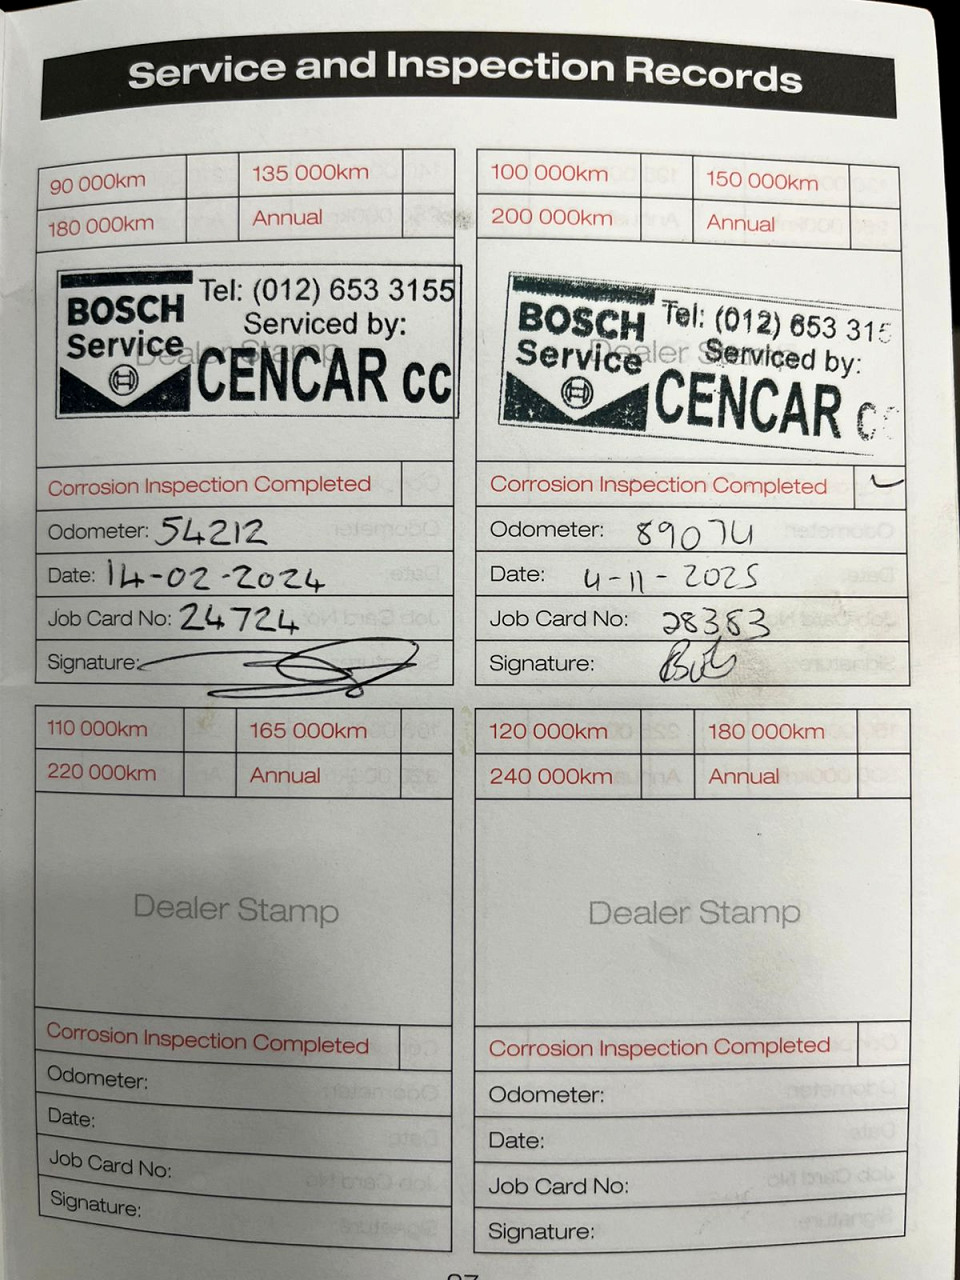 Service and Inspection Records
90 000km 135 000km
180 000km Annual
BOSCH Service Tel: (012) 653 3155
Serviced by:
CENCAR CC
Dealer Stamp
Corrosion Inspection Completed
Odometer: 54212
Date: 14-02-2024
Job Card No: 24724
Signature:
100 000km 150 000km
200 000km Annual
BOSCH Service Tel: (012) 653 315
Serviced by:
CENCAR C
Dealer Stamp
Corrosion Inspection Completed
Odometer: 89074
Date: 4-11-2025
Job Card No: 28383
Signature:
110 000km 165 000km
220 000km Annual
Dealer Stamp
Corrosion Inspection Completed
Odometer:
Date:
Job Card No:
Signature:
120 000km 180 000km
240 000km Annual
Dealer Stamp
Corrosion Inspection Completed
Odometer:
Date:
Job Card No:
Signature: